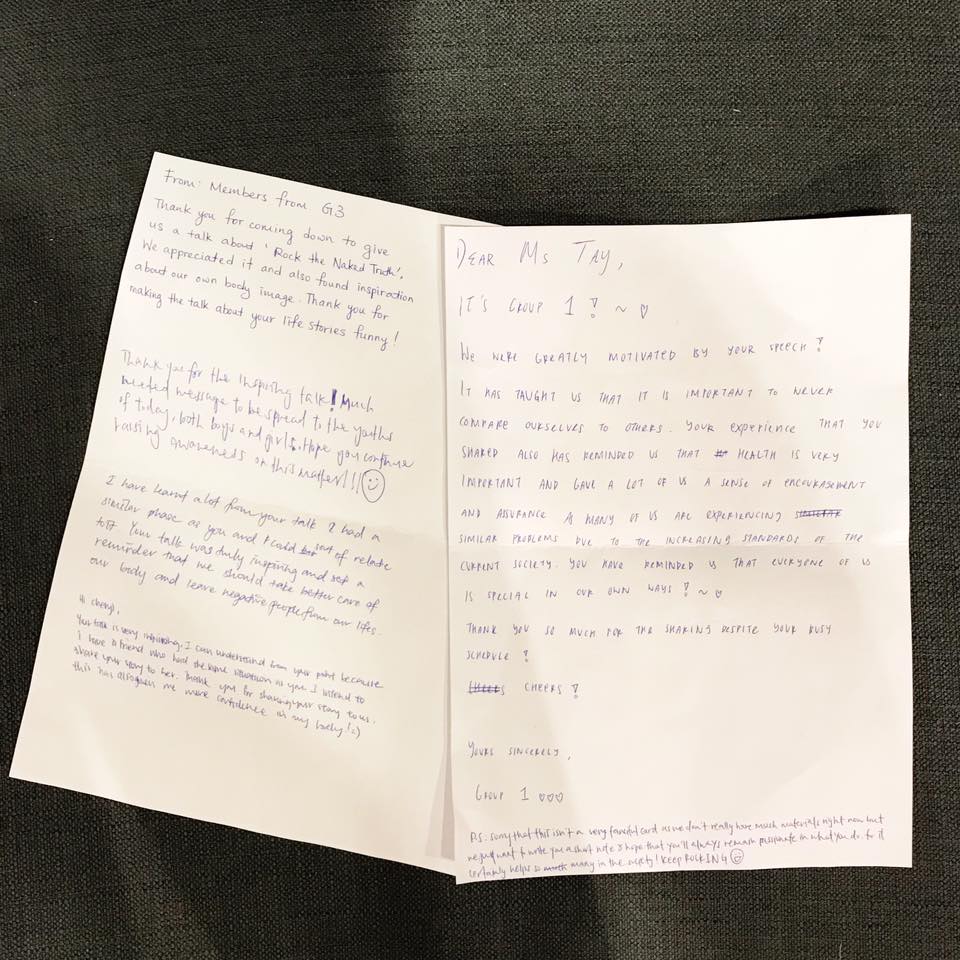 From: Members from G3
Thank you for coming down to give
us a talk about 'Rock the Naked Truth'.
We appreciated it and also found inspiration
about our own body image. Thank you for
making the talk about your life stories funny!
Thank you for the inspiring talk! Much
needed message to be spread to the youths
of today, both boys and girls. Hope you continue
raising awareness on this matter!!!
I have learnt a lot from your talk I had a
similar phase as you and I could sort of relate
to it. Your talk was truly inspiring and set a
reminder that we should take better care of
our body and leave negative people from our lifes.
Hi cheryl,
Your talk is very inspiring. I can understand from your point because
I have a friend who had the same situation as you. I intend to
share your story to her. Thank you for sharing your story to us.
this has also given me more confidence in my body! :)
DEAR MS TAY,
IT'S GROUP 1! ~ ♡
WE WERE GREATLY MOTIVATED BY YOUR SPEECH!
IT HAS TAUGHT US THAT IT IS IMPORTANT TO NEVER
COMPARE OURSELVES TO OTHERS. YOUR EXPERIENCE THAT YOU
SHARED ALSO HAS REMINDED US THAT HEALTH IS VERY
IMPORTANT AND GAVE A LOT OF US A SENSE OF ENCOURAGEMENT
AND ASSURANCE AS MANY OF US ARE EXPERIENCING
SIMILAR PROBLEMS DUE TO THE INCREASING STANDARDS OF THE
CURRENT SOCIETY. YOU HAVE REMINDED US THAT EVERYONE OF US
IS SPECIAL IN OUR OWN WAYS! ~ ♡
THANK YOU SO MUCH FOR THE SHARING DESPITE YOUR BUSY
SCHEDULE!
CHEERS!
YOURS SINCERELY,
GROUP 1 ♡♡♡
P.S: Sorry that this isn't a very fanciful card as we don't really have much materials right now but
we just want to write you a short note & hope that you'll always remain passionate in what you do. for it
certainly helps so many in the society! KEEP ROCKING